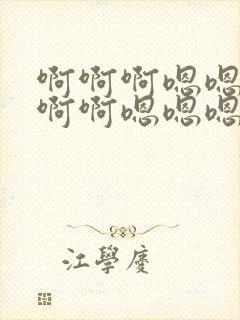 啊啊啊嗯嗯
啊啊嗯嗯嗯
江學慶